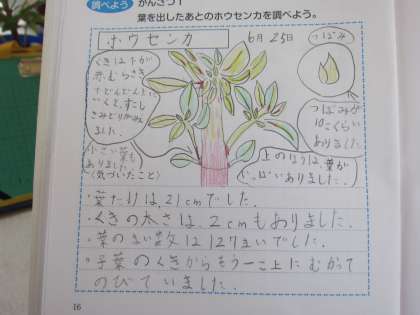 調べよう かんさつ1
葉を出したあとのホウセンカを調べよう。
ホウセンカ
6月25日
つぼみ
くきは下が
赤むらさき
でどんどん上に
いくと、すこし
きみどりがかり
ました。
つぼみが
10こくらい
ありました。
小さい葉も
ありました
(気づいたこと)
上のほうは葉が
いっぱいありました。
・葉たけは、21cmでした。
・くきの太さは、2cmもありました。
・葉のまい数は127まいでした。
・子葉のくきからもう一こ上にむかって
のびていました。
16